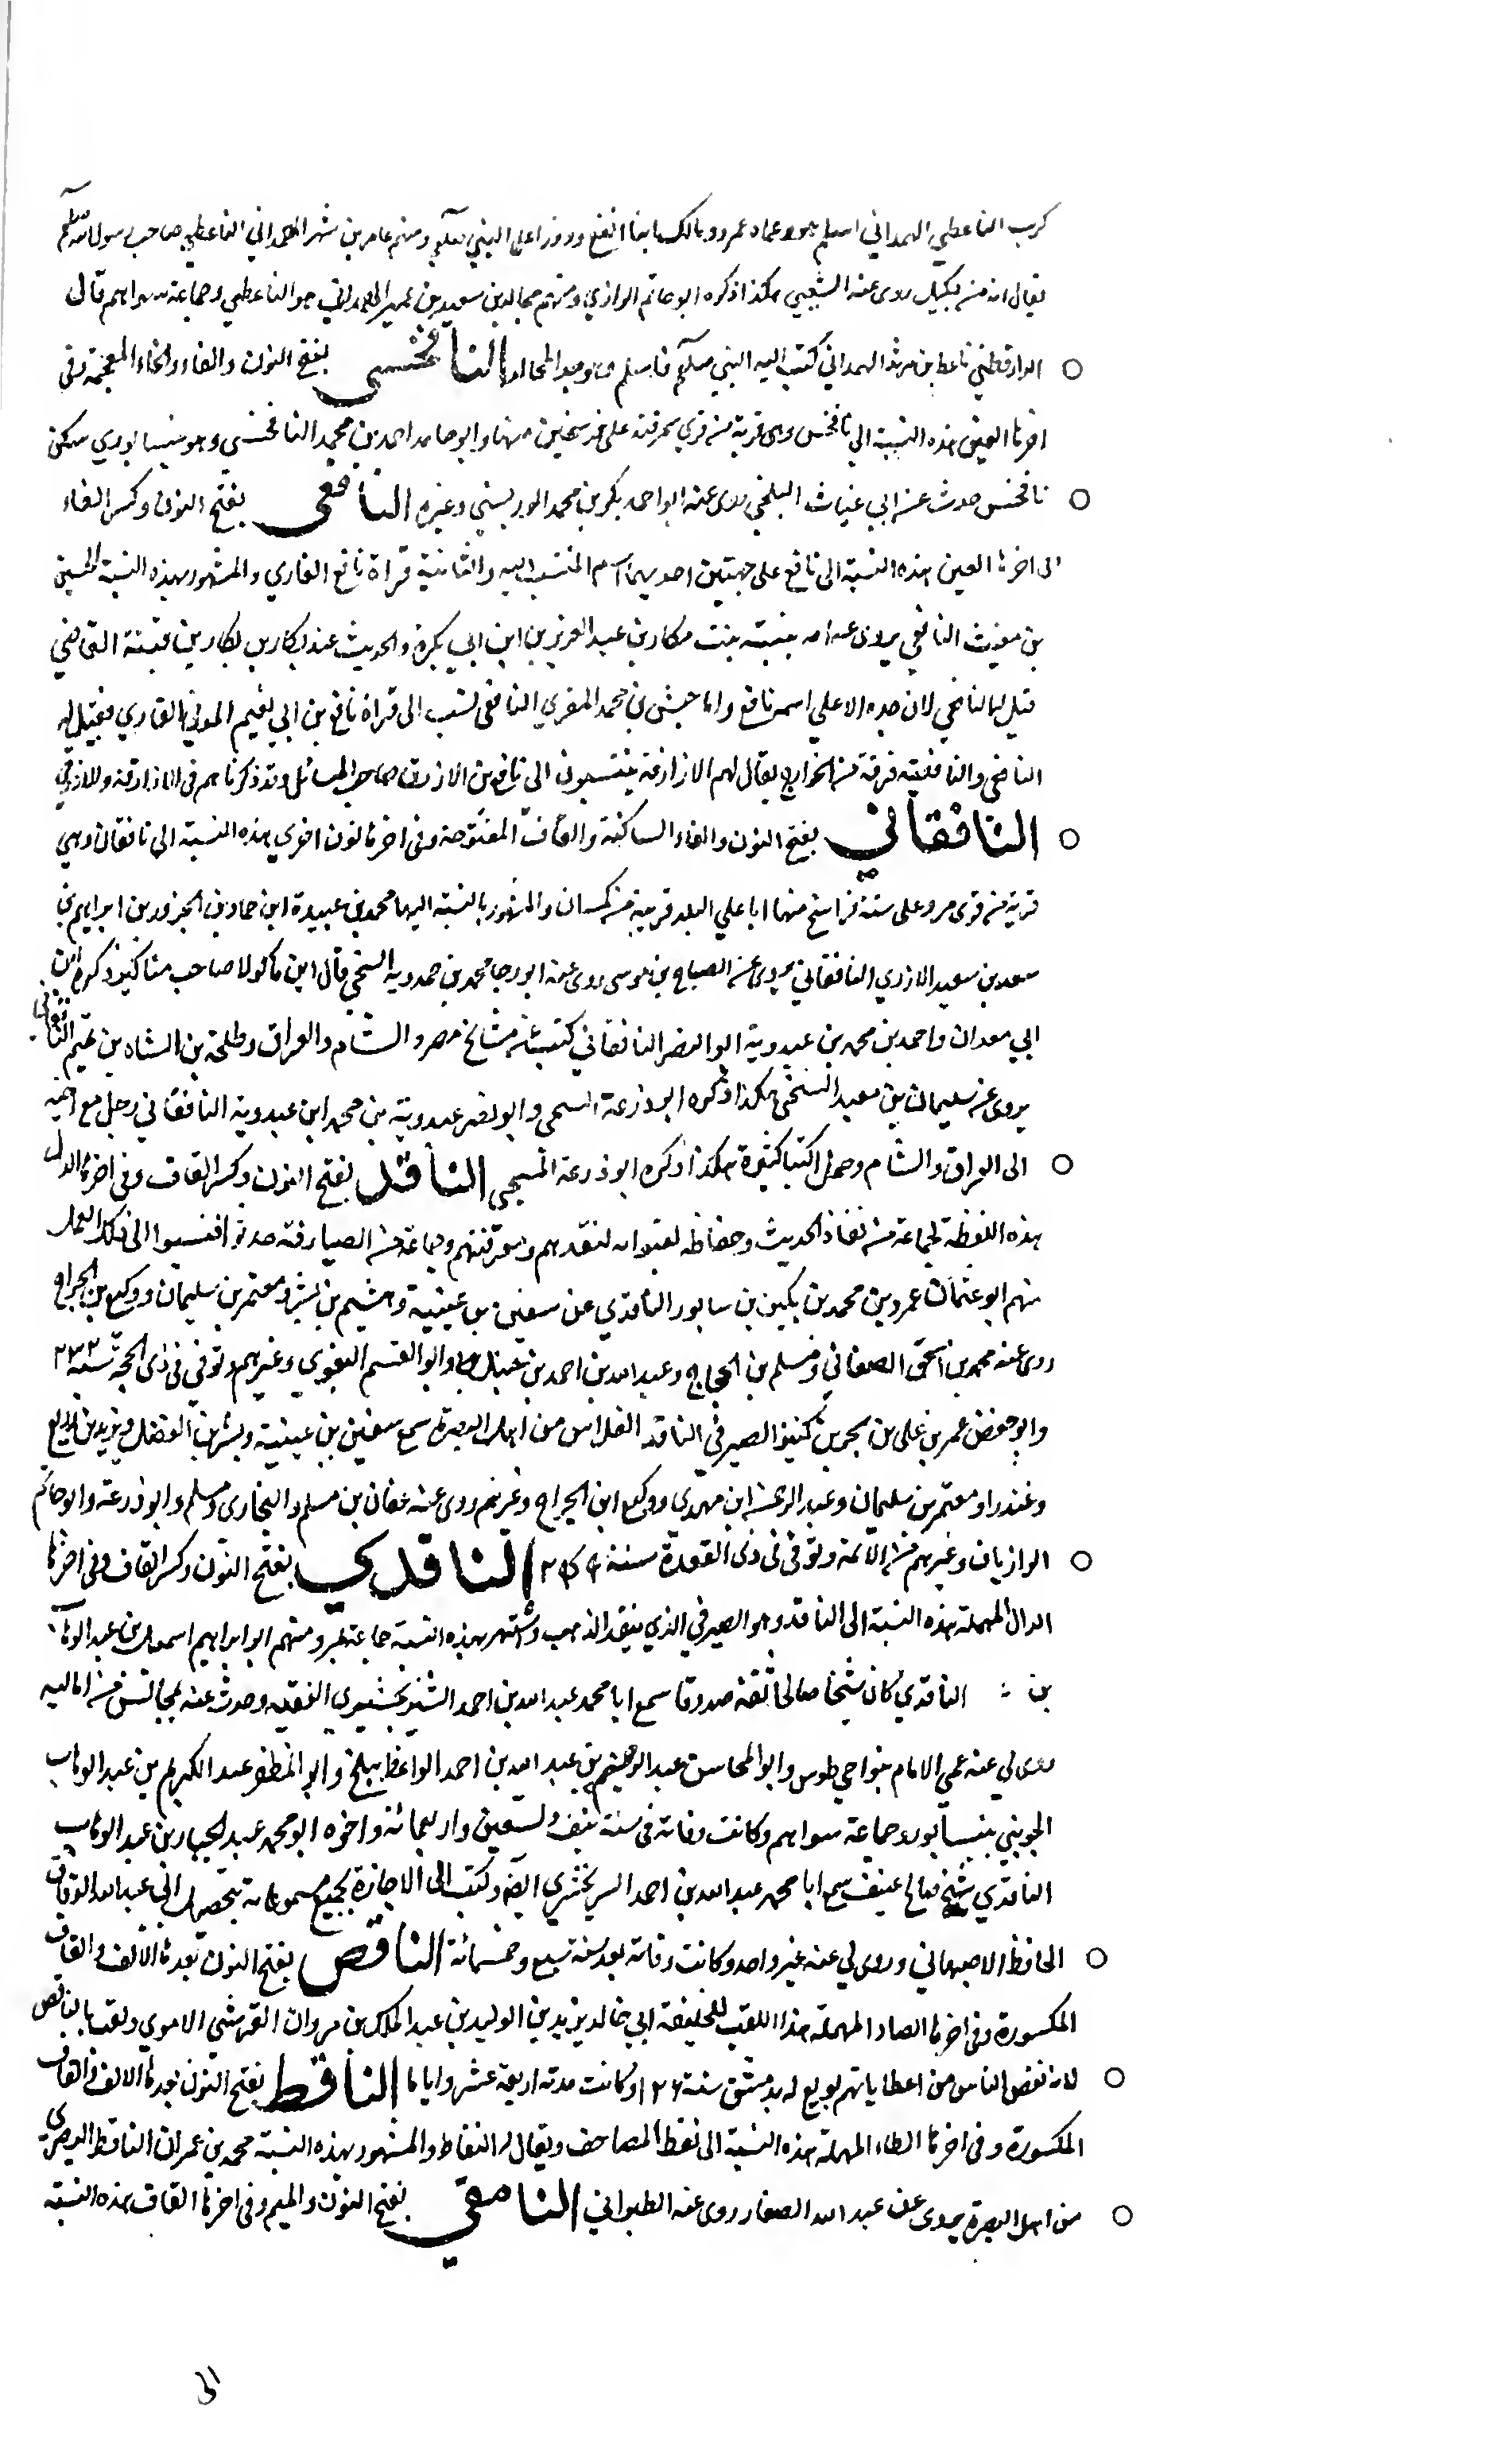 كرب الناعطي الهمداني اسلم هو وعماه عمرو ومالك ابنا ايفع ووفدا على النبي صلعم ومنهم عامر بن شهر الهمداني الناعطي صاحب رسول الله صلعم
يقال انه من بكيل روى عنه الشعبي هكذا ذكره ابو حاتم الرازي ومنهم مجالد بن سعيد بن عمير الهمداني هو الناعطي وجماعة سواهم قال
الدارقطني ناعط بن مرثد الهمداني كتب اليه النبي صلعم فاسلم وهو جد المجالد النافخسي بفتح النون والفاء والخاء المعجمة وفي
اخرها السين هذه النسبة الى نافخس وهي قرية من قرى سمرقند على فرسخين منها وابو حامد احمد بن محمد النافخسي وهو نيسابوري سكن
نافخس حدث عن ابي غياث البلخي روى عنه ابو احمد بكر بن محمد الورسيني وغيره النافعي بفتح النون وكسر الفاء
الى اخرها العين هذه النسبة الى نافع على جهتين احديهما اسم المنتسب اليه والثانية قراة نافع القاري والمشهور بهذه النسبة الحسين
بن مغيث النافعي يروى عن امه بنت بكار بن عبد العزيز بن ابي بكرة والحديث عند بكار بن قتيبة القاضي
قيل له النافعي لان جده الاعلى اسمه نافع واما حبش بن محمد المقري النافعي نسب الى قراة نافع بن ابي نعيم المدني القاري فقيل له
النافعي والنافعية فرقة من الخوارج يقال لهم الازارقة ينتسبون الى نافع بن الازرق صاحب المسائل وقد ذكرناهم في الازارقة والازرقي
النافقاني بفتح النون والفاء الساكنة والقاف المفتوحة وفي اخرها نون اخرى هذه النسبة الى نافقان وهي
قرية من قرى مرو على ستة فراسخ منها باعلى البلد قريبة من كمسان والمشهور بالنسبة اليها محمد بن عبيدة ابن حماد بن الجزور بن ابراهيم بن
سعد بن سعيد الازدي النافقاني يروى عن الصباح بن موسى روى عنه ابو رجا محمد بن حمدويه السنجي قال ابن ماكولا صاحب مناكير ذكره ابن
ابي معدان واحمد بن محمد بن عبدوية ابو النضر النافقاني كتب عن مشائخ مصر والشام والعراق وطلحة بن الشاه بن تميم النافقاني
يروى عن سليمان بن معبد السنجي هكذا ذكره ابو زرعة السنجي وابو نصر عبدوية بن محمد ابن عبدوية النافقاني رحل مع اخيه
الى العراق والشام وحمل كتبا كثيرة هكذا ذكره ابو زرعة السنجي الناقد بفتح النون وكسر القاف وفي اخرها الدال
هذه اللفظة لجماعة من نقاد الحديث وحفاظه لقبوا به لنقدهم ومعرفتهم وجماعة من الصيارفة حدثوا فنسبوا الى ذلك العمل
منهم ابو عثمان عمرو بن محمد بن بكير بن سابور الناقد يروي عن سفين بن عيينة وهشيم بن بشير ومعتمر بن سليمان ووكيع بن الجراح
روى عنه محمد بن اسحق الصغاني ومسلم بن الحجاج وعبد الله بن احمد بن حنبل وابو القسم البغوي وغيرهم وتوفي في ذي الحجة سنة ٢٣٢
وابو حفص عمر بن علي بن بحر بن كنيز الصيرفي الناقد الفلاس من اهل البصرة سمع سفين بن عيينة وبشر بن المفضل ويزيد بن زريع
وغندرا ومعتمر بن سليمان وعبد الرحمن ابن مهدي ووكيع ابن الجراح وغيرهم روى عنه عفان بن مسلم والبخاري ومسلم وابو زرعة وابو حاتم
الرازيان وغيرهم من الائمة وتوفي في ذي القعدة سنة ٢٤٩ الناقدي بفتح النون وكسر القاف وفي اخرها
الدال المهملة هذه النسبة الى الناقد وهو الصيرفي الذي ينقد الذهب واشتهر بهذه النسبة جماعة بمرو منهم ابو ابراهيم اسمعيل بن عبد الوهاب
بن الناقدي كان شيخا صالحا ثقة صدوقا سمع ابا محمد عبد الله بن احمد الشيرنخشيري الفقيه وحدث عنه بمجالس من اماليه
روى لي عنه عمي الامام بنواحي طوس وابو المحاسن عبد الرحيم بن عبد الله بن احمد الواعظ ببلخ وابو المظفر عبد الكريم بن عبد الوهاب
الجويني بنيسابور وجماعة سواهم وكانت وفاته في سنة نيف وتسعين واربعمائة واخوه ابو محمد عبد الجبار بن عبد الوهاب
الناقدي شيخ صالح عفيف سمع ابا محمد عبد الله بن احمد الشيرنخشيري ايضا وكتب الى الاجازة بجميع مسموعاته بتحصيل ابي عبد الله الدقاق
الحافظ الاصبهاني وروى لي عنه غير واحد وكانت وفاته بعد سنة سبع وخمسمائة الناقص بفتح النون بعدها الالف والقاف
المكسورة وفي اخرها الصاد المهملة هذا اللقب للخليفة ابي خالد يزيد بن الوليد بن عبد الملك بن مروان القرشي الاموي ولقب بالناقص
لانه نقص الناس من اعطياتهم بويع له بدمشق سنة ١٢٦ وكانت مدته اربعة عشر واياما الناقط بفتح النون بعدها الالف والقاف
المكسورة وفي اخرها الطاء المهملة هذه النسبة الى نقط المصاحف ويقال له النقاط والمشهور بهذه النسبة محمد بن عمران الناقط البصري
من اهل البصرة يروى عن عبد الله الصفار روى عنه الطبراني النامقي بفتح النون والميم وفي اخرها القاف هذه النسبة
الى